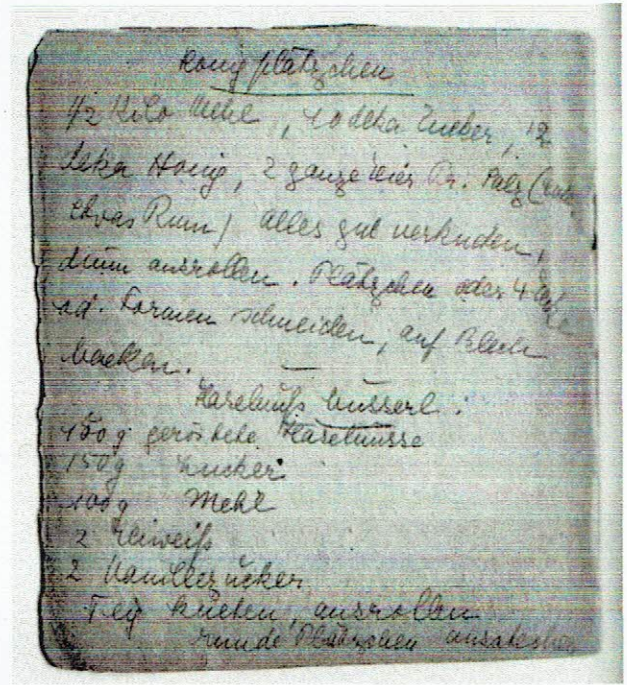 Honigplätzchen
1/2 Kilo Mehl, 10 deka Zucker, 12
deka Honig, 2 ganze Eier Pr. Salz
etwas Rum) alles gut verkneden,
dünn ausrollen. Plätzchen oder 4
od. Formen schneiden, auf Blech
backen.
Haselnuß busserl.
150 g geröstete Haselnüsse
150 g Zucker
100 g Mehl
2 Eiweiß
2 Vanillezucker
Teig kneten, ausrollen
runde Plätzchen ausstechen